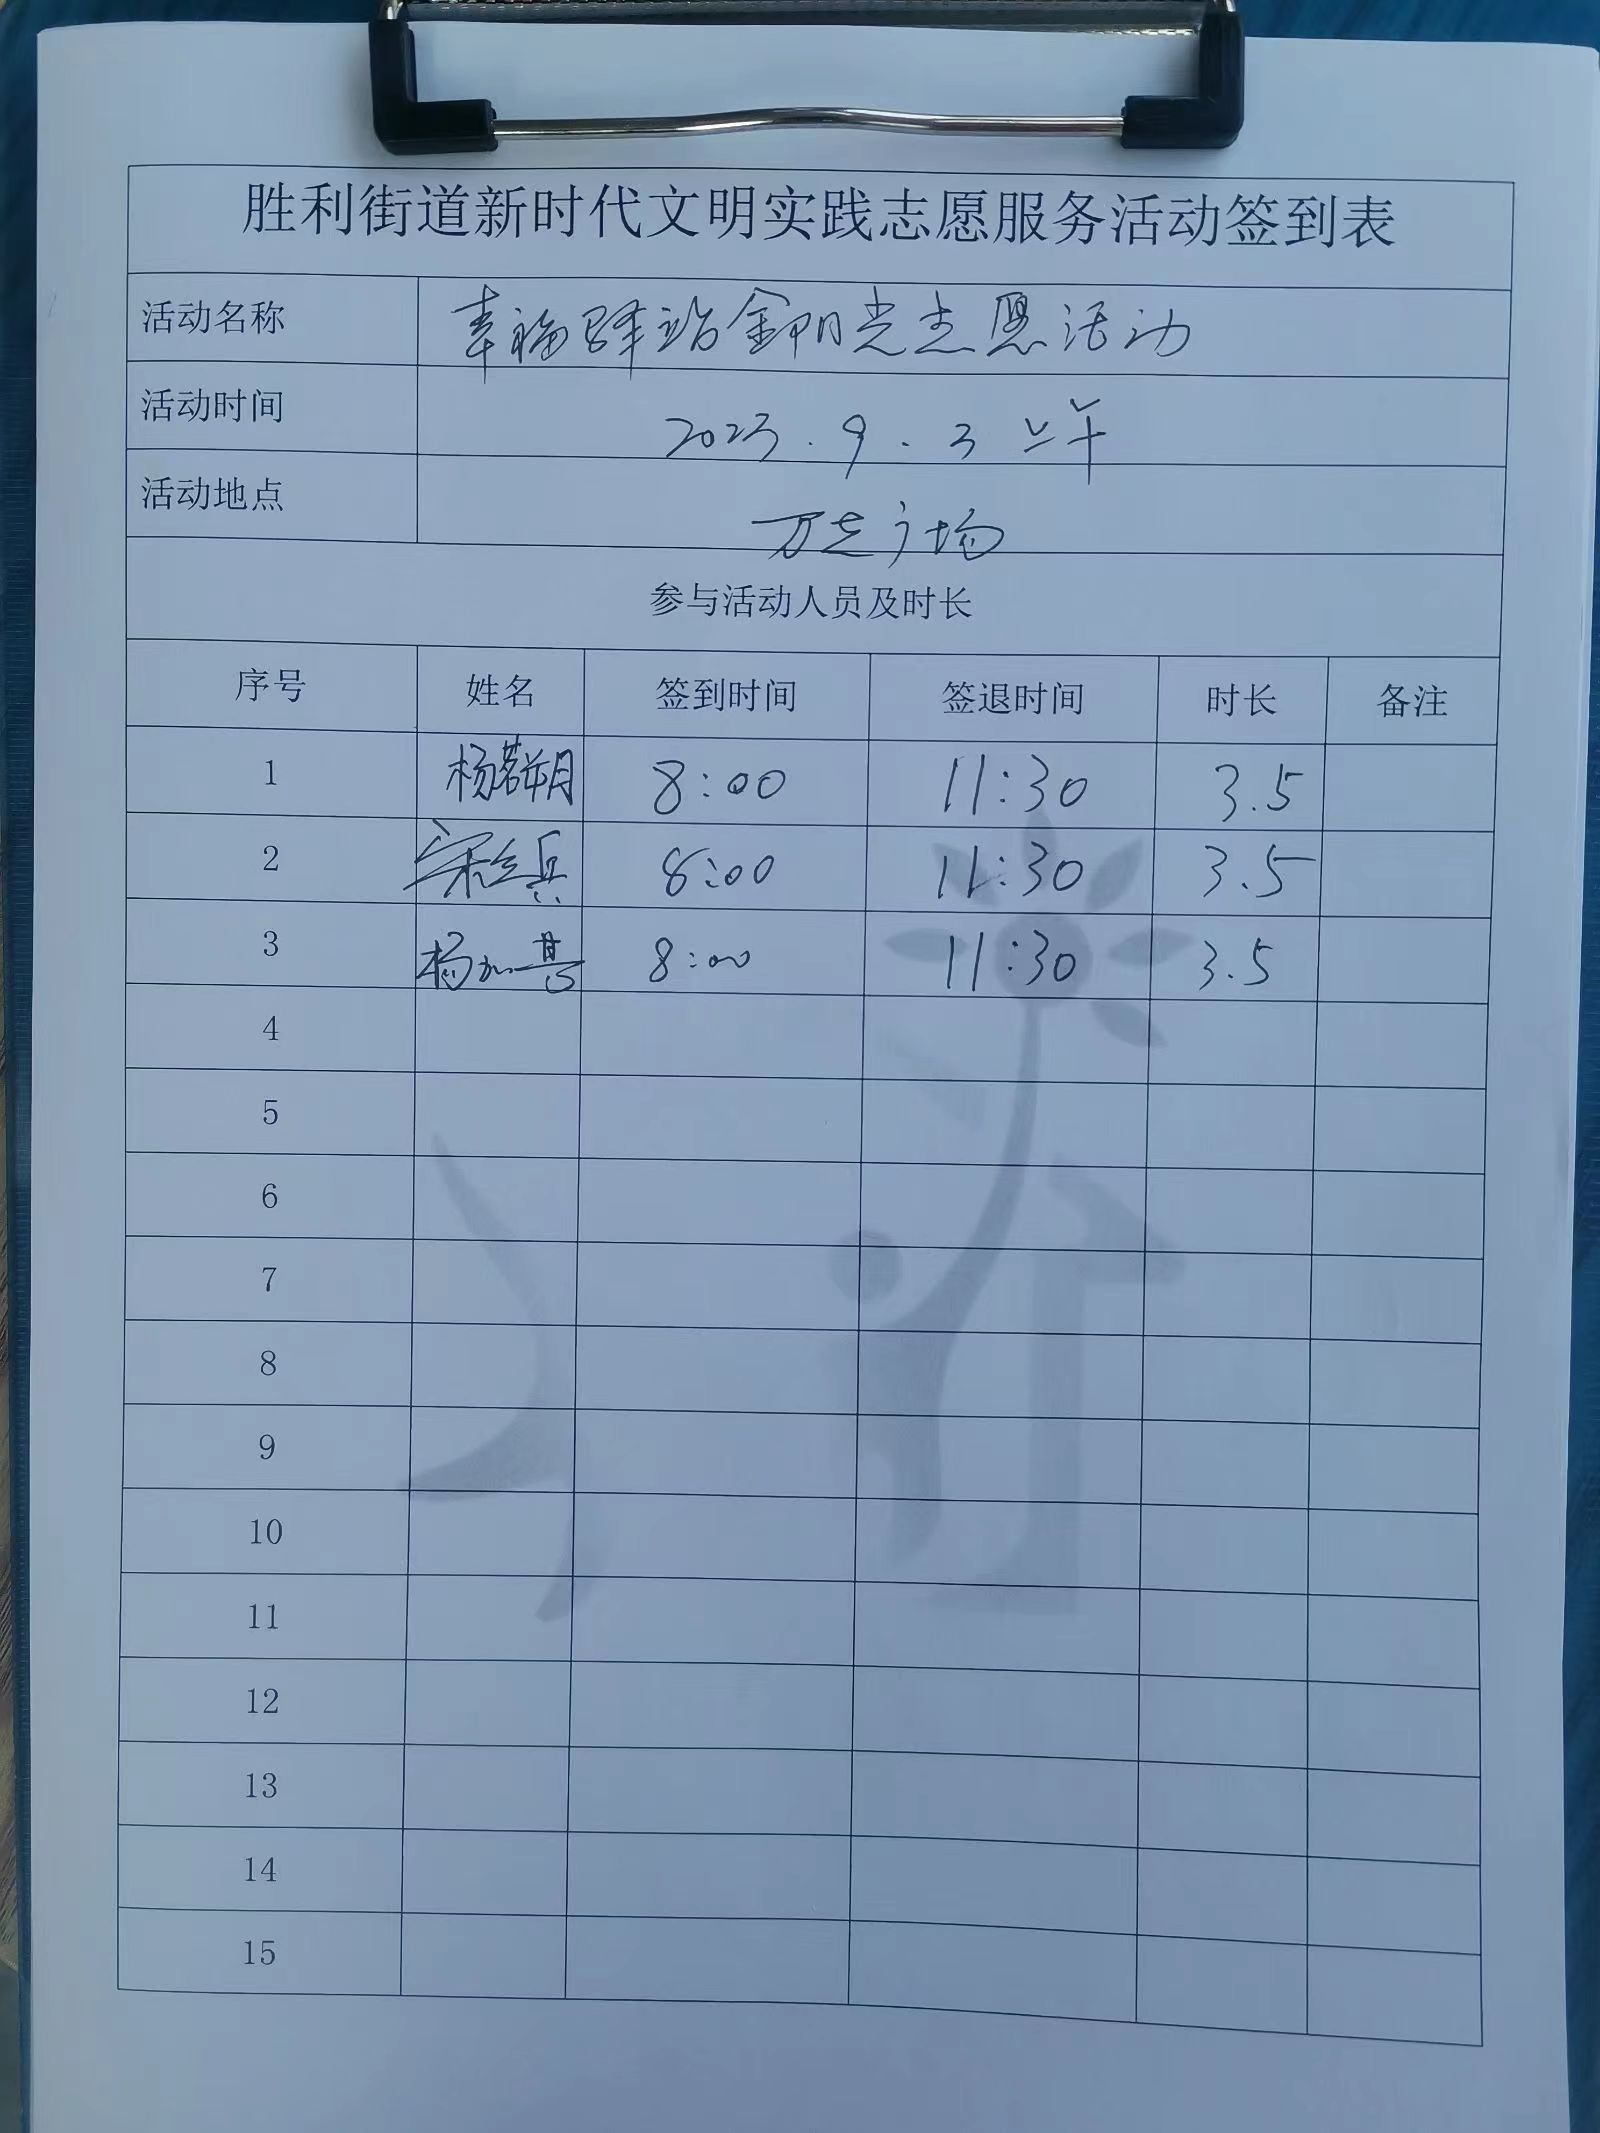 胜利街道新时代文明实践志愿服务活动签到表
活动名称 幸福驿站金阳光志愿活动
活动时间 2023.9.3 上午
活动地点 万达广场
参与活动人员及时长
序号 姓名 签到时间 签退时间 时长 备注
1 杨若朔 8:00 11:30 3.5
2 宋兵 8:00 11:30 3.5
3 杨加 8:00 11:30 3.5
4
5
6
7
8
9
10
11
12
13
14
15